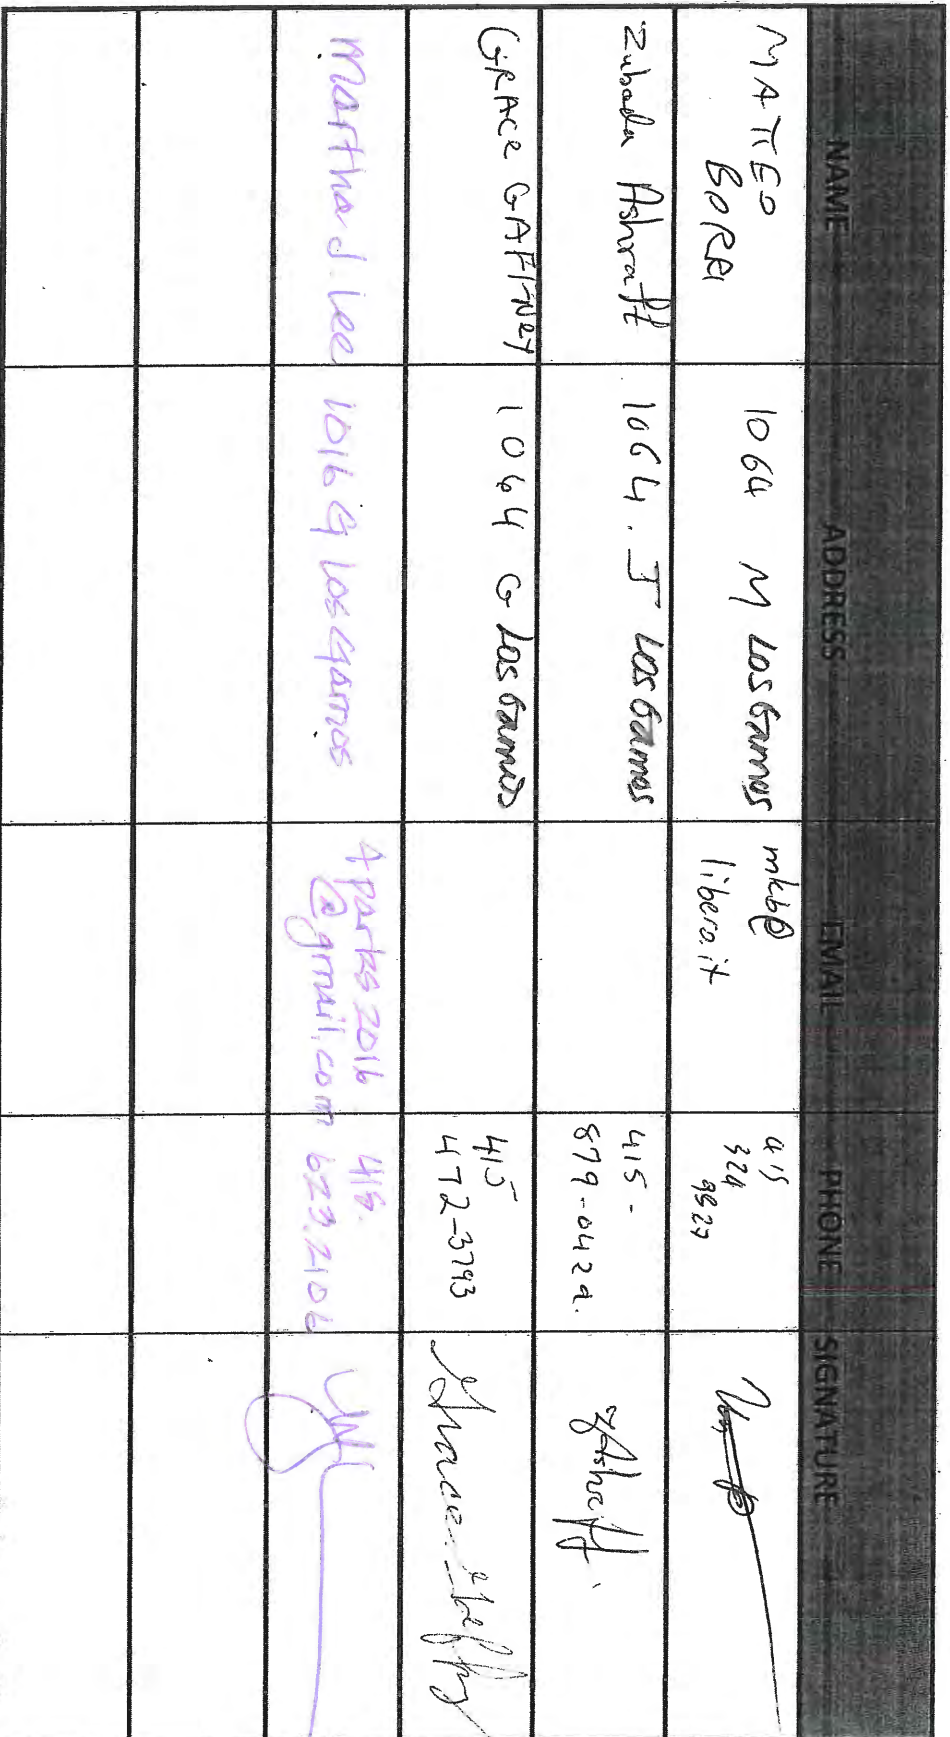 NAME ADDRESS EMAIL PHONE SIGNATURE
MATTEO
BORRI
1064 M Los Gamos
mkb@
libero.it
415
324
9827
Zubada Ashraft
1064. J Los Gamos
415-
879-0429.
ZAshraft.
GRACE GAFFNEY
1064 G Los Gamos
415
472-3793
Martha J. Lee
1016 G Los Gamos
4parks2016
@gmail.com
415.
623.2106